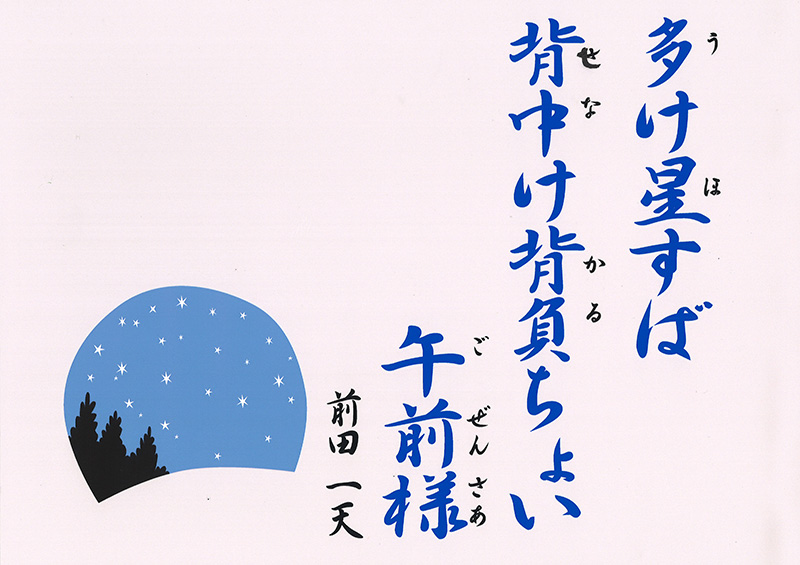 多け星すば
う ほ
背中け背負ちょい
せな かる
午前様
ごぜんさあ
前田 一天